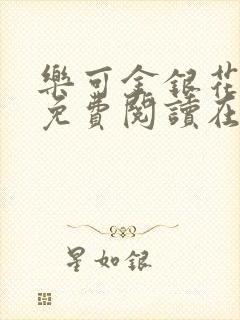 樂可金銀花
免費閱讀在
星如銀